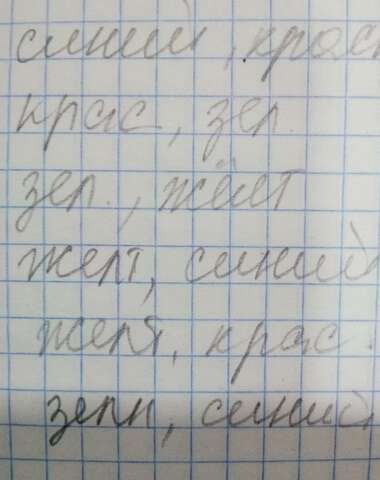 синий, крас
крас, зел.
зел., жёлт
желт, синий
желт, крас.
зелн, синий